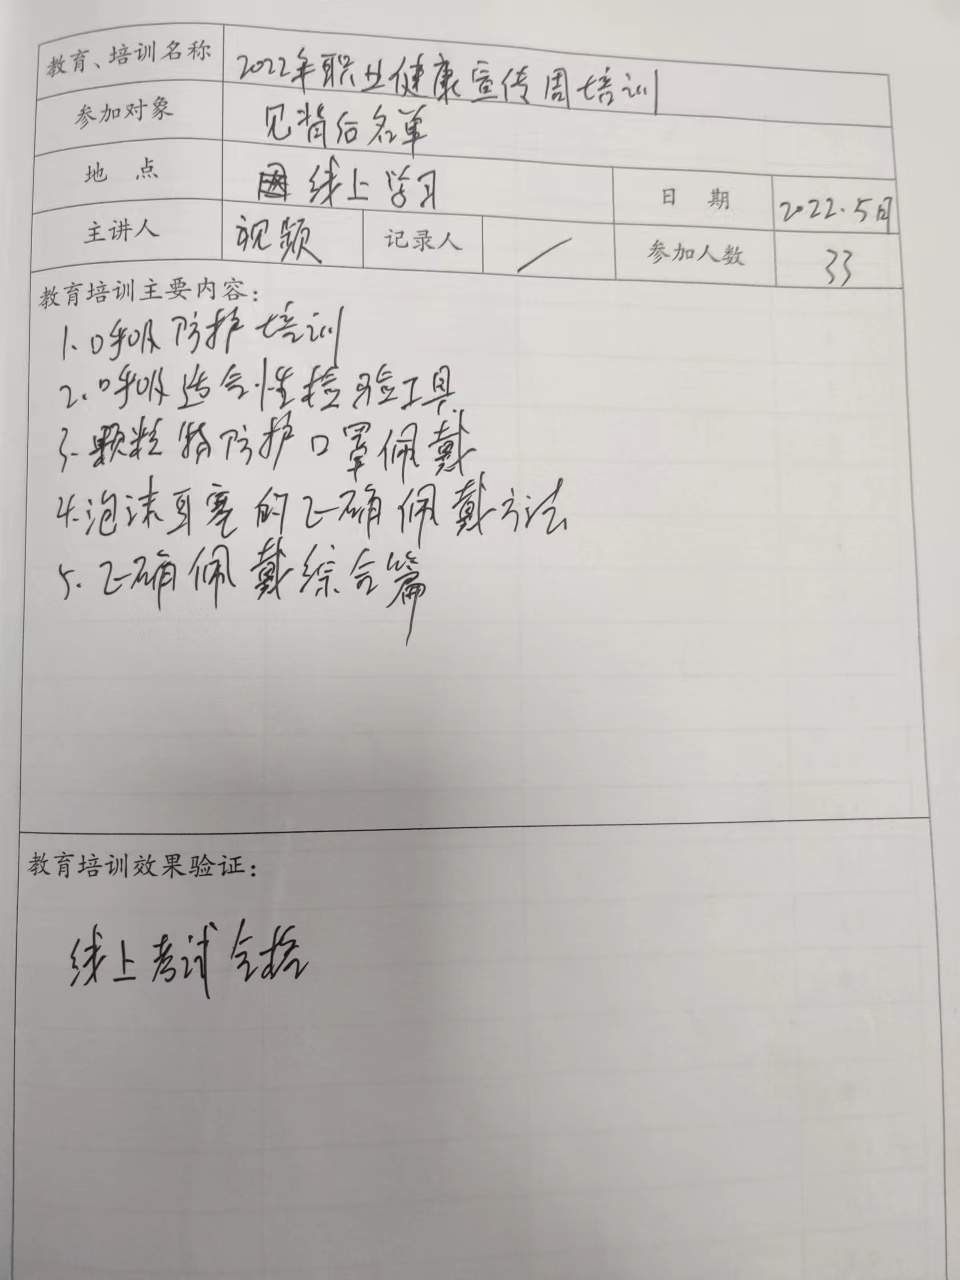 教育、培训名称 2022年职业健康宣传周培训
参加对象 见背后名单
地 点 线上学习 日 期 2022.5月
主讲人 视频 记录人 / 参加人数 33
教育培训主要内容：
1.呼吸防护培训
2.呼吸适合性检验工具
3.颗粒物防护口罩佩戴
4.泡沫耳塞的正确佩戴方法
5.正确佩戴综合篇
教育培训效果验证：
线上考试合格